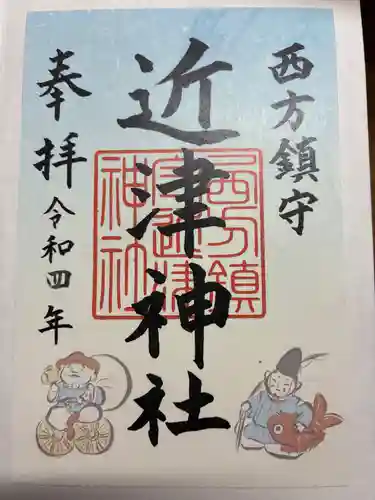 西方鎮守
近津神社
奉拝
令和四年
西方鎮
近津
神社